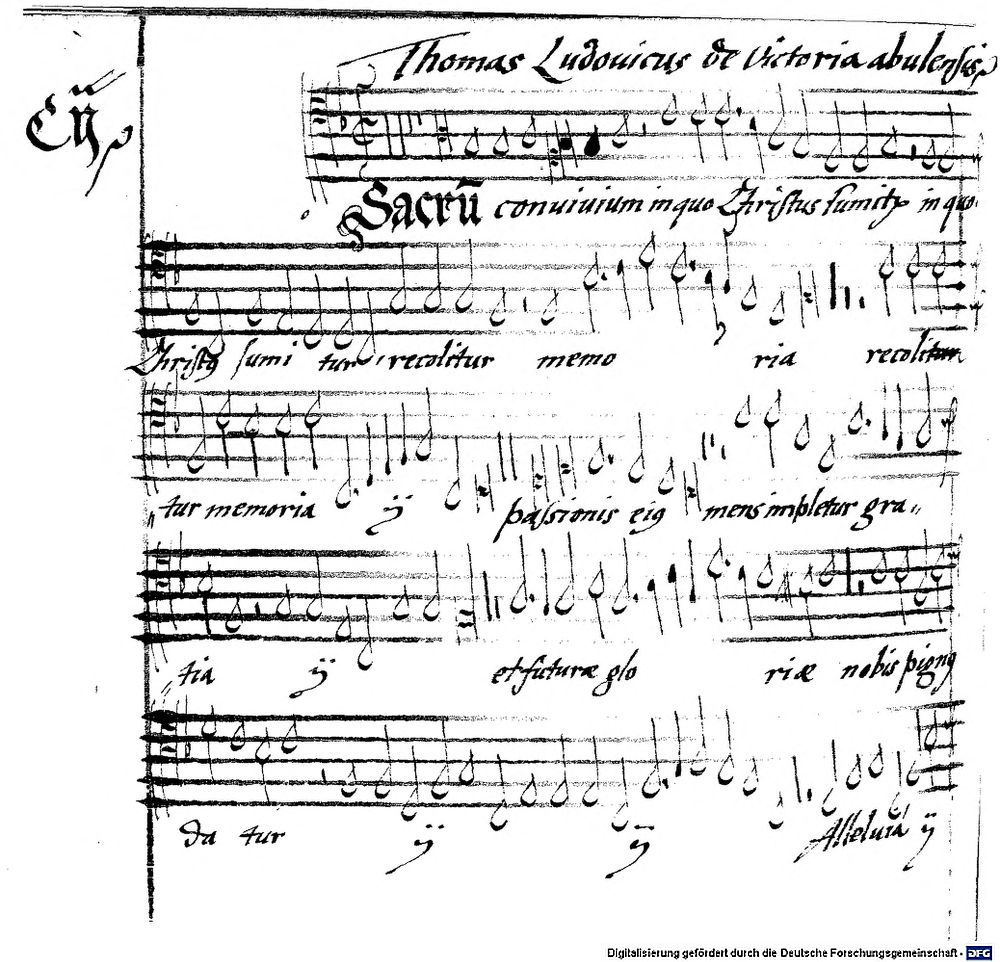 Thomas Ludovicus de Victoria abulensis
Sacrū conviuium in quo Christus sumitꝫ in quo
Christꝰ sumi tur recolitur memo ria recolitur
tur memoria ÿ passionis eiꝰ mens impletur gra„
tia ÿ et futuræ glo riæ nobis pignꝰ
da tur ÿ ÿ Alleluia ÿ
Digitalisierung gefördert durch die Deutsche Forschungsgemeinschaft - DFG